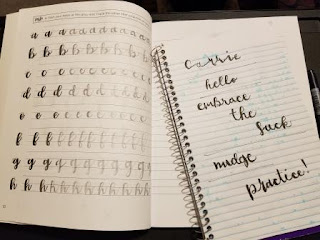 a a a a a a a a a a a
b b b b b b b b b b b
c c c c c c c c c c c
d d d d d d d d d d d
e e e e e e e e e e e
f f f f f f f f f f f
g g g g g g g g g g g
h h h h h h h h h h h
carrie
hello
embrace
the
suck
nudge
practice!